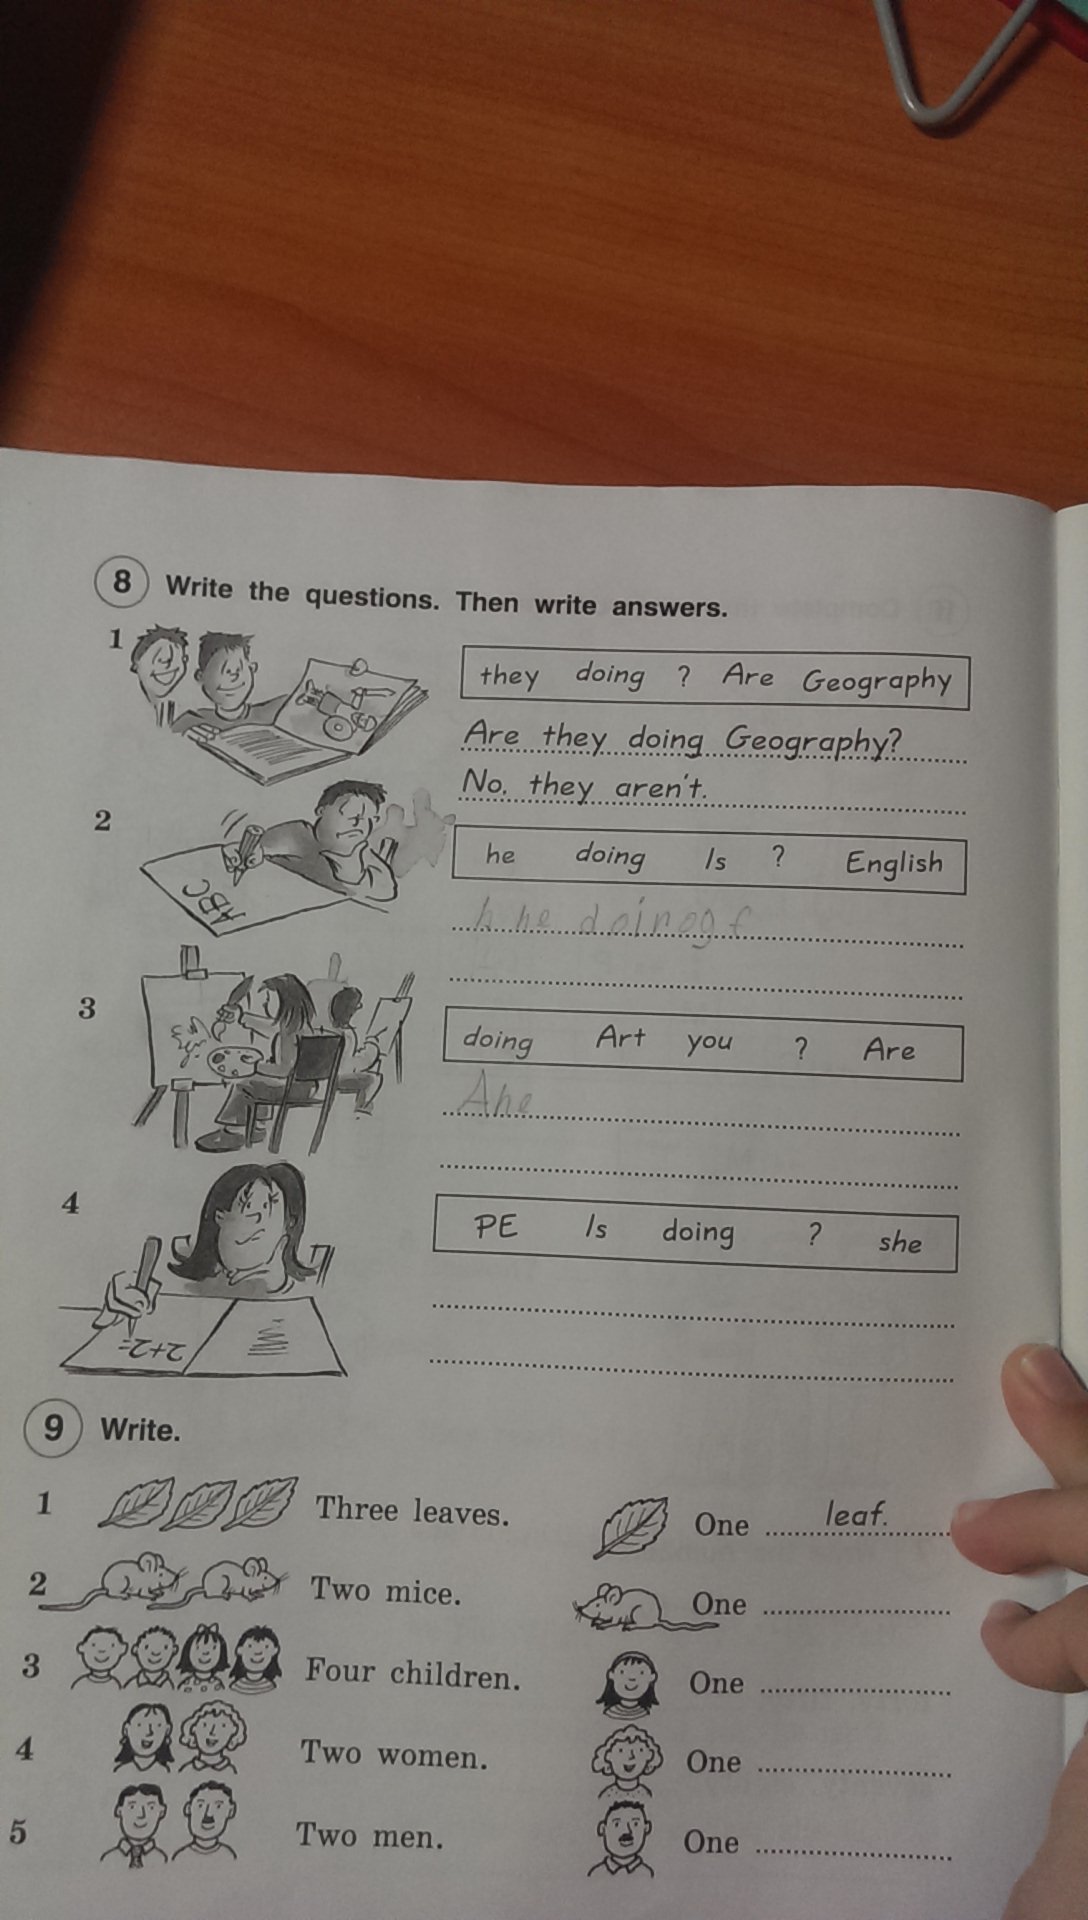 8 Write the questions. Then write answers.
1
they doing ? Are Geography
Are they doing Geography?
No, they aren't.
2
ABC
he doing Is ? English
he
3
doing Art you ? Are
4
2+2=
PE Is doing ? she
9 Write.
1 Three leaves. One leaf.
2 Two mice. One
3 Four children. One
4 Two women. One
5 Two men. One